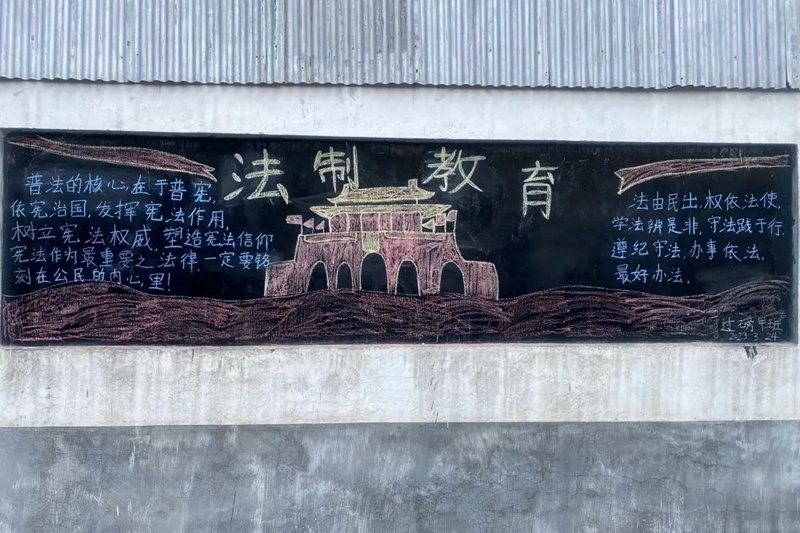 法制教育
普法的核心,在于普宪,
依宪治国,发挥宪法作用,
树立宪法权威,塑造宪法信仰
宪法作为最重要之法律,一定要铭
刻在公民的内心里!
法由民出,权依法使,
学法辨是非,守法践于行
遵纪守法,办事依法,
最好办法。
甲班
2023.3.24